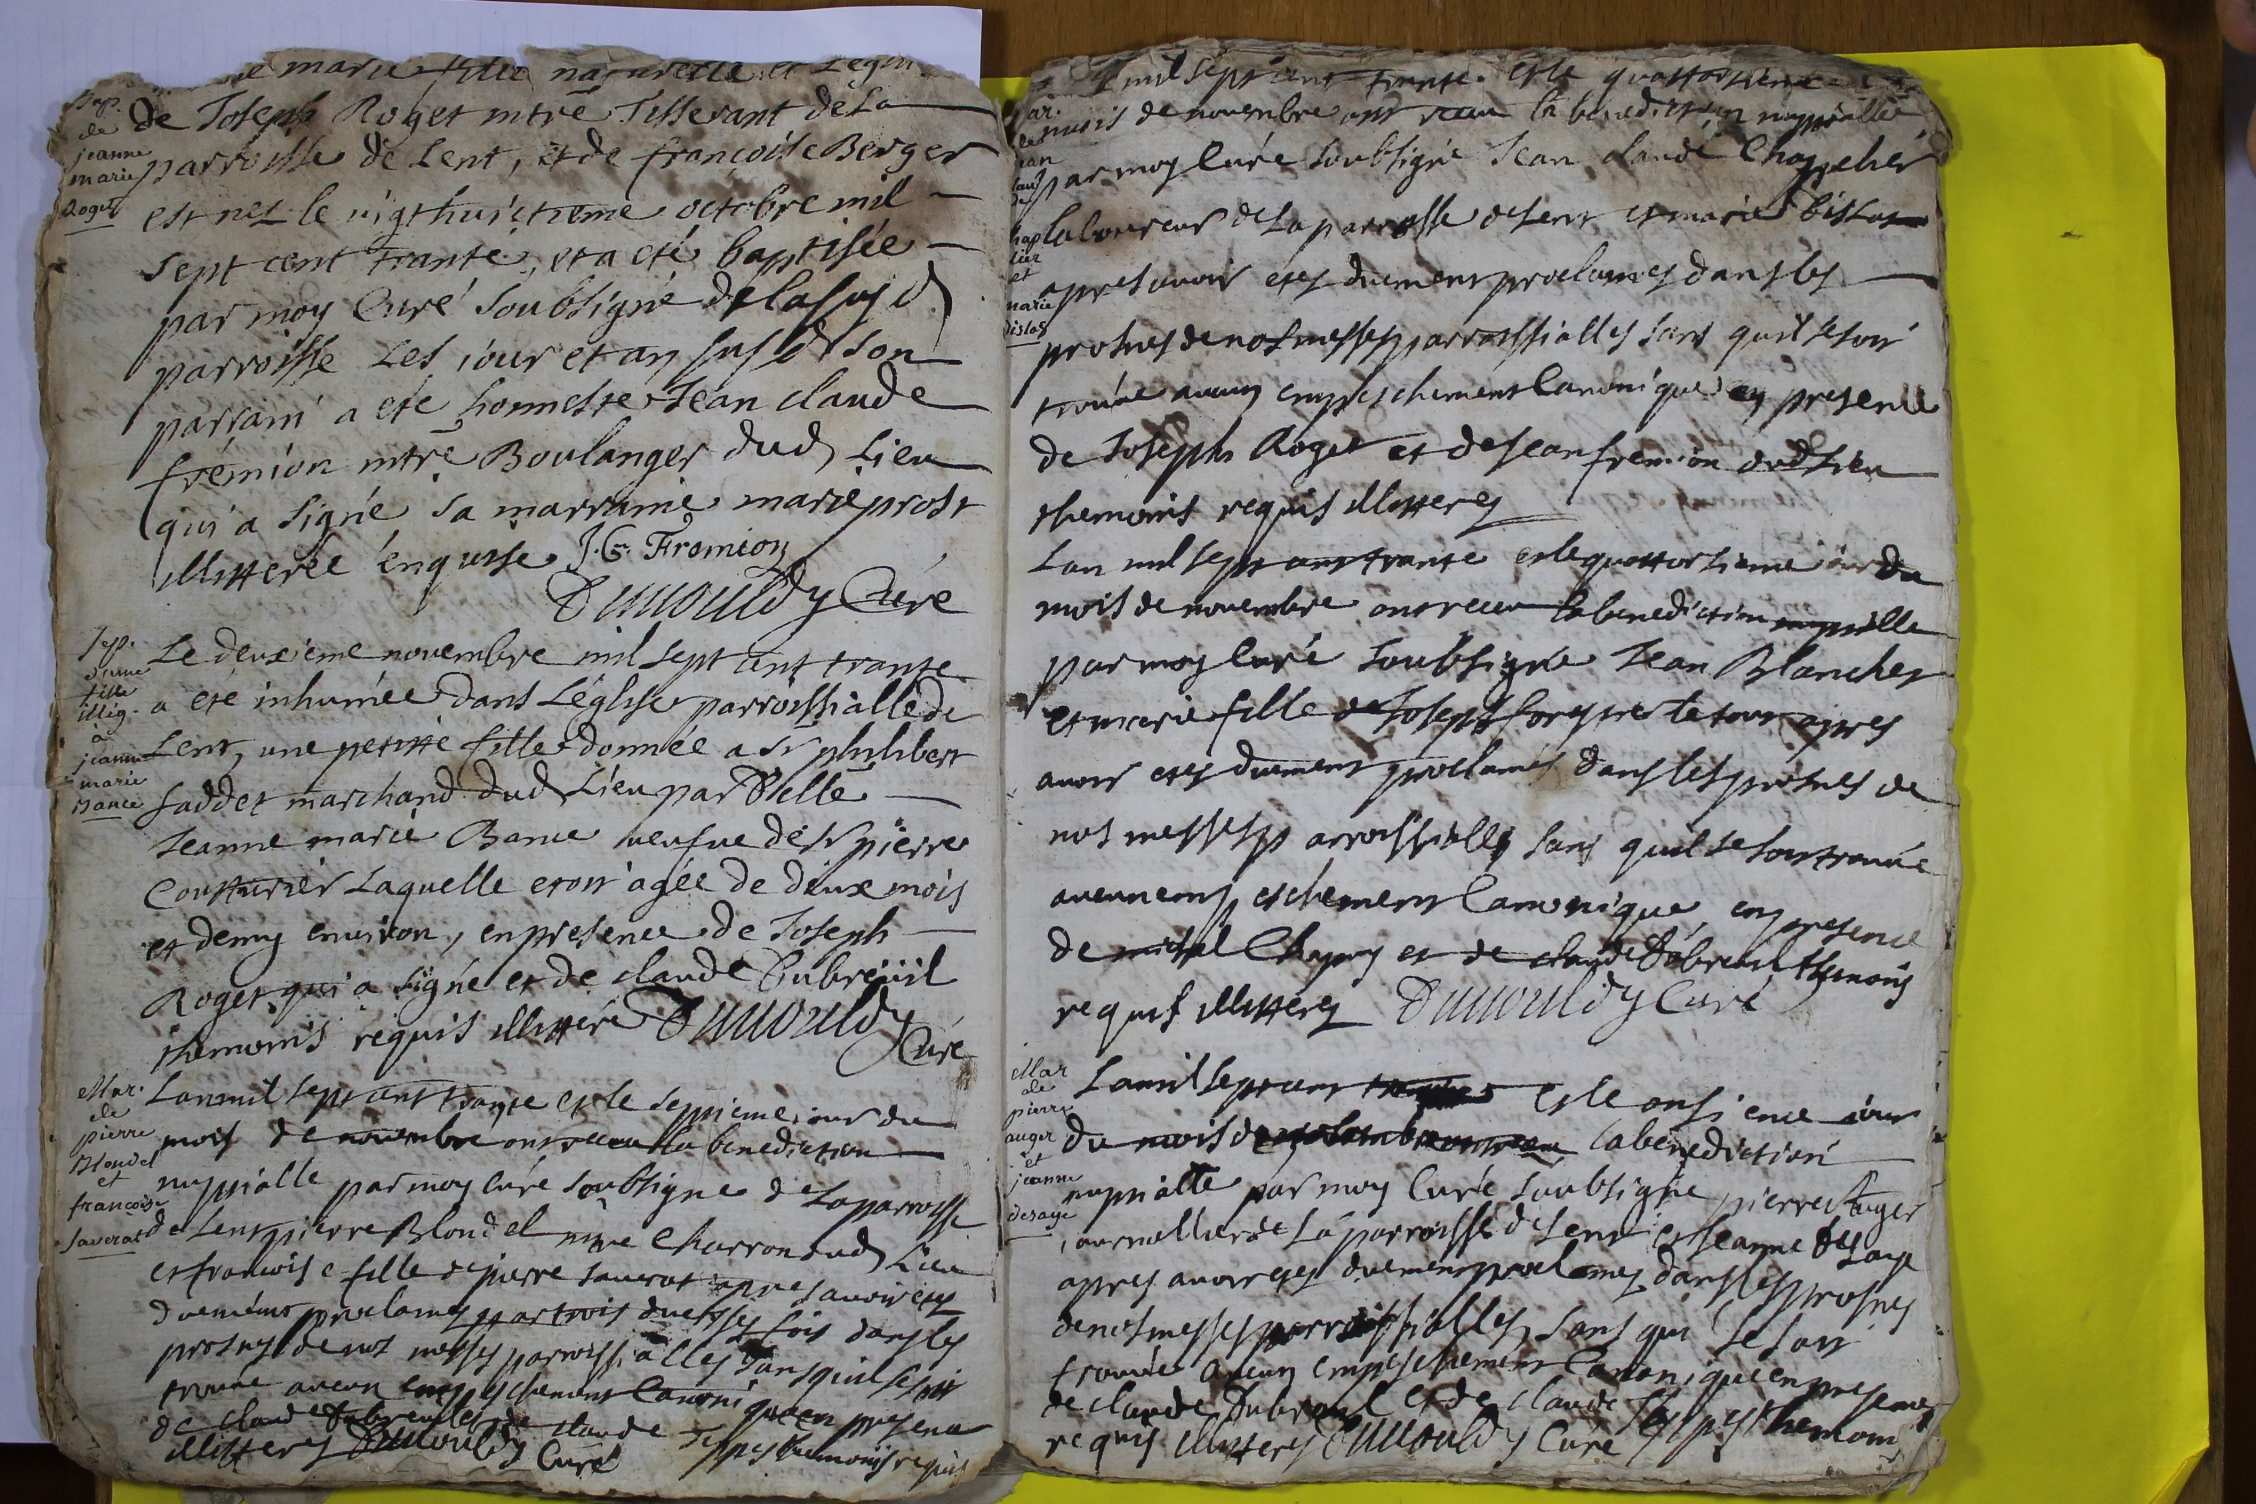 marie fille naturelle et Legit
Bap.
de
jeanne
marie
Roget
de Joseph Roget mtre Tisserant de La
parroisse de Lent, et de françoise Berger
est nez le vigt huictieme octobre mil
sept cent trante, et a eté baptisée
par moy Curé soubsigné de la susd
parroisse Les jour et an susd son
parrain a eté honneste Jean claude
fremion mtre Boulanger dud Lieu
qui a signé sa marraine marie prost
illitterée enquise J. C. Fremion
Dunouldy Curé
Sep.
d'une
fille
illég.
a
jeanne
marie
Bance
Le deuxieme novembre mil sept cent trante
a eté inhumée dans L'église parroissialle de
Lent, une petitte fille donnée a Sr philibert
faddet marchand dud Lieu par Delle
Jeanne marie Bance veufve de Sr pierre
Couturier Laquelle etoit agée de deux mois
et demy environ, en presence de Joseph
Roget qui a signé et de claude Dubreüil
themoins requis illitteré Dunouldy
Curé
Mar.
de
pierre
Blondel
et
françoise
Sauerat
Lan mil sept cent trante et le septieme jour du
mois de novembre ont receu la benediction
nuptialle par moy Curé soubsigne de La parroisse
de Lent pierre Blondel mtre Charron dud Lieu
et francoise fille de pierre sauerat apres avoir etez
duement proclamez par trois diverses fois dans les
prosnes de nos messes parroissialles sans quil se soit
trouvé aucun empeschement Canonique en presence
de claude Dubreuil et de claude themoins requis
illitteres Dunouldy Curé
mil sept cent trante et le quattorsieme
Mar.
de
jean
claude
chap
elier
et
marie
bislas
mois de novembre ont receu la benediction nuptialle
par moy Curé soubsigné Jean claude Chappelier
laboureur de La parroisse de Lent et marie bislas
apres avoir etez duement proclamez dans les
prosnes de nos messes parroissialles sans quil se soit
trouvé aucun empeschement Canonique en presence
de Joseph Roget et de Jean fremion dud Lieu
themoins requis illitterez
Lan mil sept cent trante et le quattorsieme jour du
mois de novembre ont receu la benediction nuptialle
par moy Curé soubsigné Jean Blanchet
et marie fille de Joseph apres
avoir etez duement proclamés dans les prosnes de
nos messes parroissialles sans quil se soit trouvé
aucun empeschement Canonique en presence
de michel Chapuy et de claude Dubreuil themoins
requis illitterez Dunouldy Curé
Mar
de
pierre
auger
et
jeanne
desage
Lan mil sept cent et le onsieme jour
du mois de la benediction
nuptialle par moy Curé soubsigné pierre Auger
journallier de La parroisse de Lent et Jeanne Desage
apres avoir etez duement proclamez dans les prosnes
de nos messes parroissialles, sans qui se soit
trouvé aucun empeschement Canonique en presence
de claude Dubreuil et de claude themoins
requis illitteres Dunouldy Curé